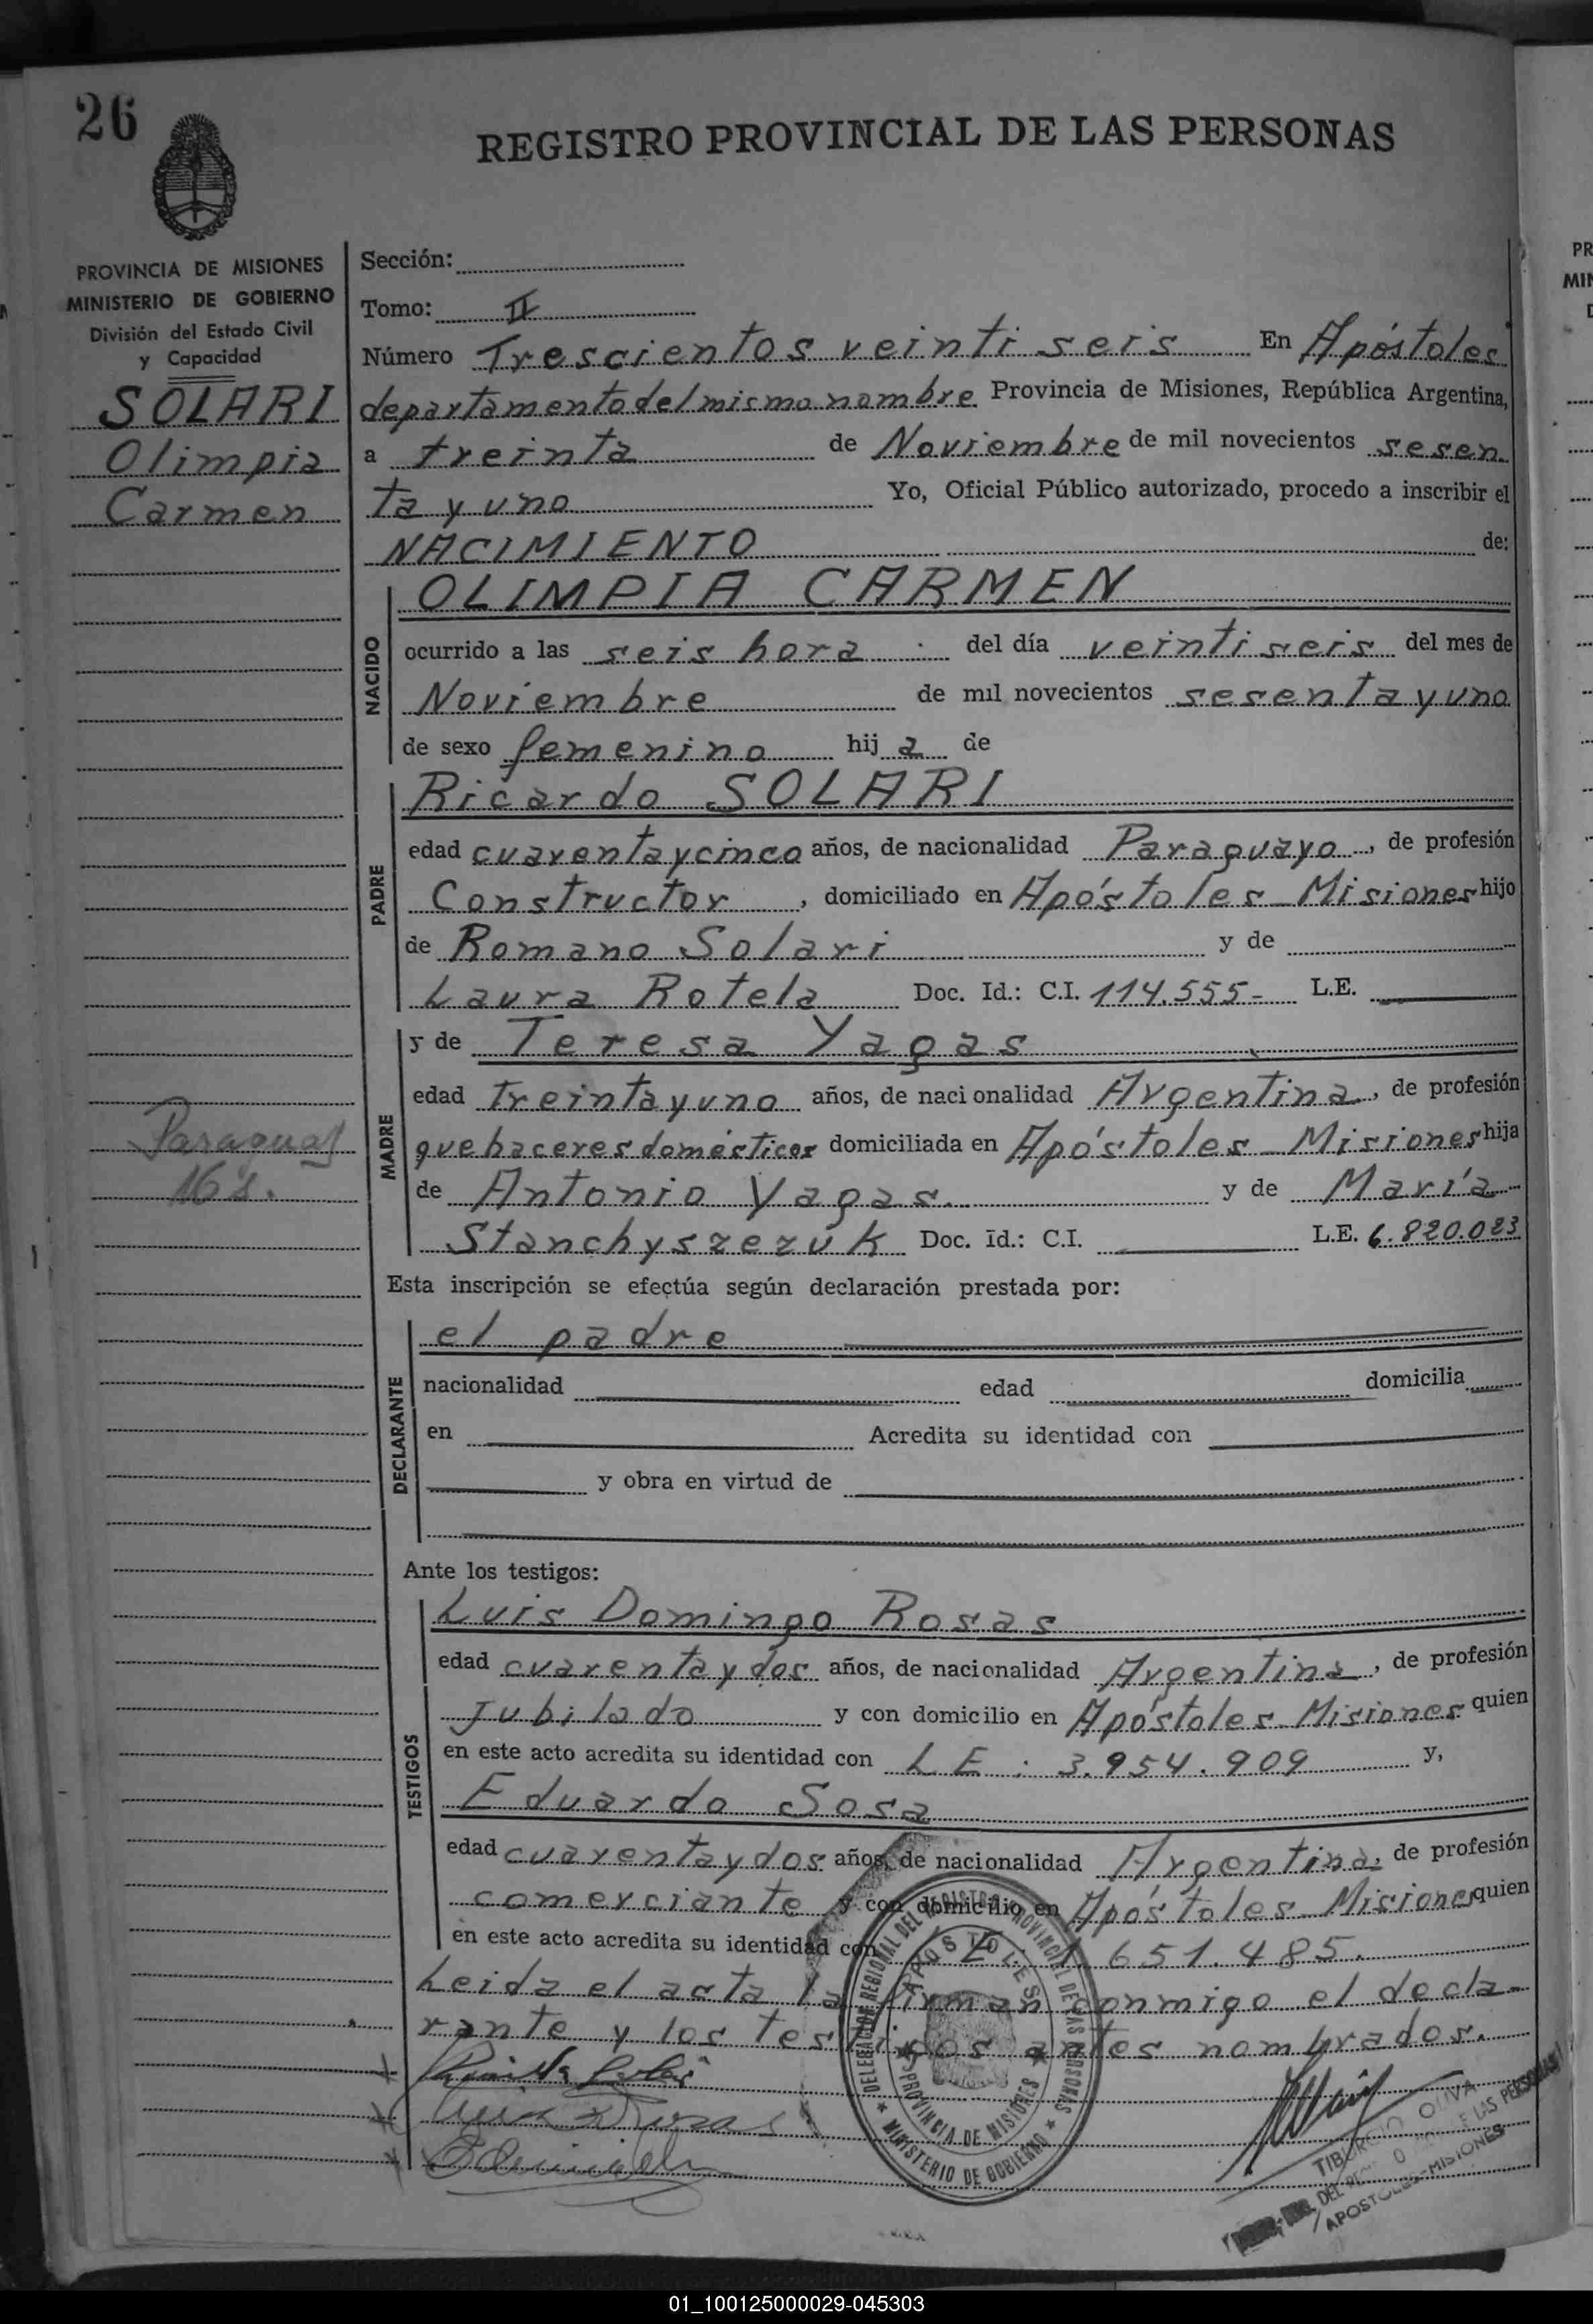 26
REGISTRO PROVINCIAL DE LAS PERSONAS
PROVINCIA DE MISIONES
MINISTERIO DE GOBIERNO
División del Estado Civil
y Capacidad
SOLARI
Olimpia
Carmen
Paraguay
Sección:
Tomo: II
Número Trescientos veinti seis En Apóstoles
departamento del mismo nombre Provincia de Misiones, República Argentina,
a treinta de Noviembre de mil novecientos sesen
ta y uno Yo, Oficial Público autorizado, procedo a inscribir el
NACIMIENTO de:
NACIDO
OLIMPIA CARMEN
ocurrido a las seis hora del día veinti seis del mes de
Noviembre de mil novecientos sesenta y uno
de sexo femenino hij a de
PADRE
Ricardo SOLARI
edad cuarenta y cinco años, de nacionalidad Paraguayo, de profesión
Constructor, domiciliado en Apóstoles - Misiones hijo
de Romano Solari y de
Laura Rotela Doc. Id.: C.I. 114.555- L.E.
MADRE
y de Teresa Yagas
edad treinta y uno años, de naci onalidad Argentina, de profesión
quehaceres domésticos domiciliada en Apóstoles - Misiones hija
de Antonio Yagas. y de María
Stanchyszezuk Doc. Id.: C.I. L.E. 6.820.023
Esta inscripción se efectúa según declaración prestada por:
DECLARANTE
el padre
nacionalidad edad domicilia
en Acredita su identidad con
y obra en virtud de
Ante los testigos:
TESTIGOS
Luis Domingo Rosas
edad cuarenta y dos años, de nacionalidad Argentina, de profesión
Jubilado y con domicilio en Apóstoles - Misiones quien
en este acto acredita su identidad con L E : 3.954.909 y,
Eduardo Sosa
edad cuarenta y dos años, de nacionalidad Argentina, de profesión
comerciante y con domicilio en Apóstoles - Misiones quien
en este acto acredita su identidad con E 651.485.
Leida el acta la firman conmigo el decla-
rante y los testigos antes nombrados.
DELEGACION REGIONAL DEL REGISTRO PROVINCIAL DE LAS PERSONAS
APOSTOLES
PROVINCIA DE MISIONES
MINISTERIO DE GOBIERNO
TIBURCIO OLIVA
DEL E LAS PERSONAS
APOSTOLES-MISIONES
01_100125000029-045303